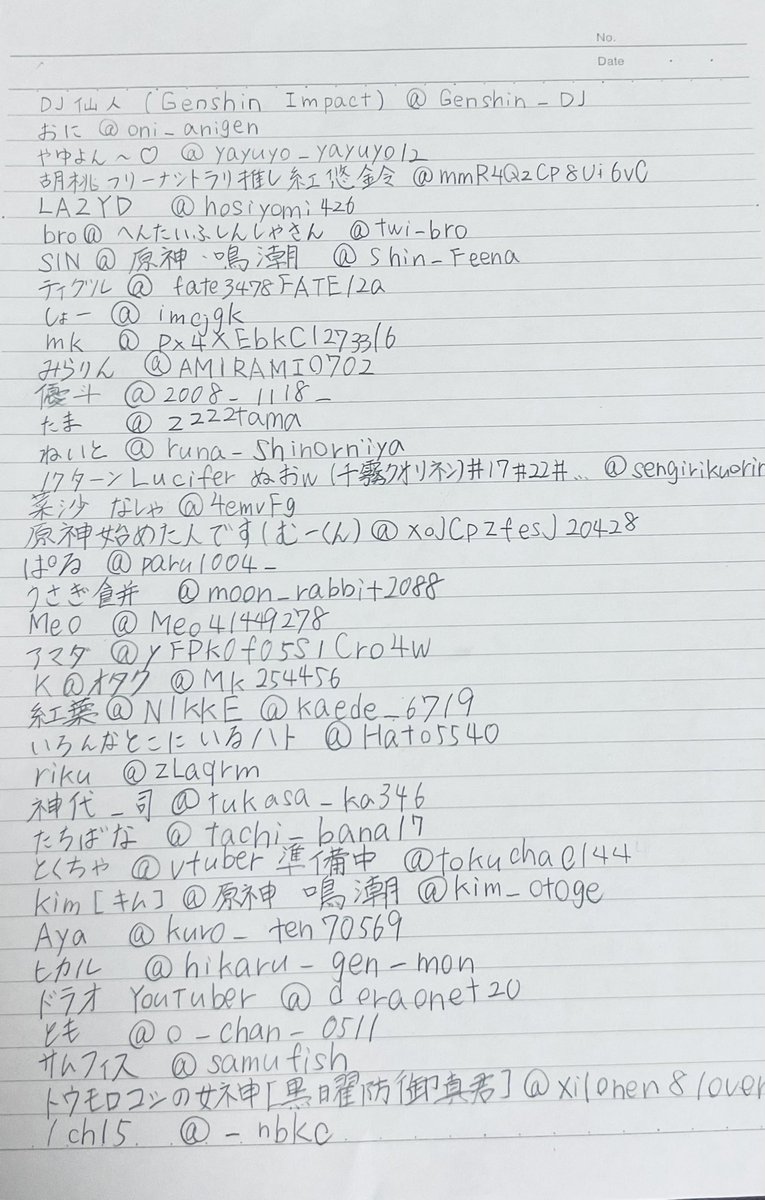 No.
Date
DJ仙人 (Genshin Impact) @ Genshin_DJ
おに @oni_anigen
やゆよん～♡ @yayuyo_yayuyo12
胡桃フリーナントラリ推し紅悠鈴 @mmR4Q2Cp8Ui6vC
LAZYD @hosiyomi426
bro@へんたいふしんしゃさん @twi-bro
SIN@原神・鳴潮 @Shin_Feena
ティグル@ fate3478FATE12a
しょー @imcjgk
mk @Px4XEbkC1273316
みらりん @AMIRAMI0702
優斗 @2008_1118_
たま @zzzztama
ねいと @runa_shinomiya
17ターンLucifer ぬおw (千霧クオリネン)#17#22#… @sengirikuorin
菜沙 なしゃ @4emvFg
原神始めた人です(むーくん) @xoJCpZfesJ20428
ぱる @paru1004_
うさぎ食丼 @moon_rabbit2088
Meo @Meo41449278
アマダ @yFPK0f05S1Cro4w
K@オタク @Mk254456
紅葉@NIKKE @kaede_6719
いろんなとこにいるハト @Hato5540
riku @zLaqrm
神代_司 @tukasa_ka346
たちばな @tachi_bana17
とくちゃ @vtuber準備中 @tokuchae144
kim[キム]@原神 鳴潮 @kim_otoge
Aya @kuro_ten70569
ヒカル @hikaru-gen-mon
ドラオ YouTuber @deraonet20
とも @o-chan-0511
サムフィス @samufish
トウモロコシの女神[黒曜防御真君]@xilonen8lover
1ch15 @-nbkc